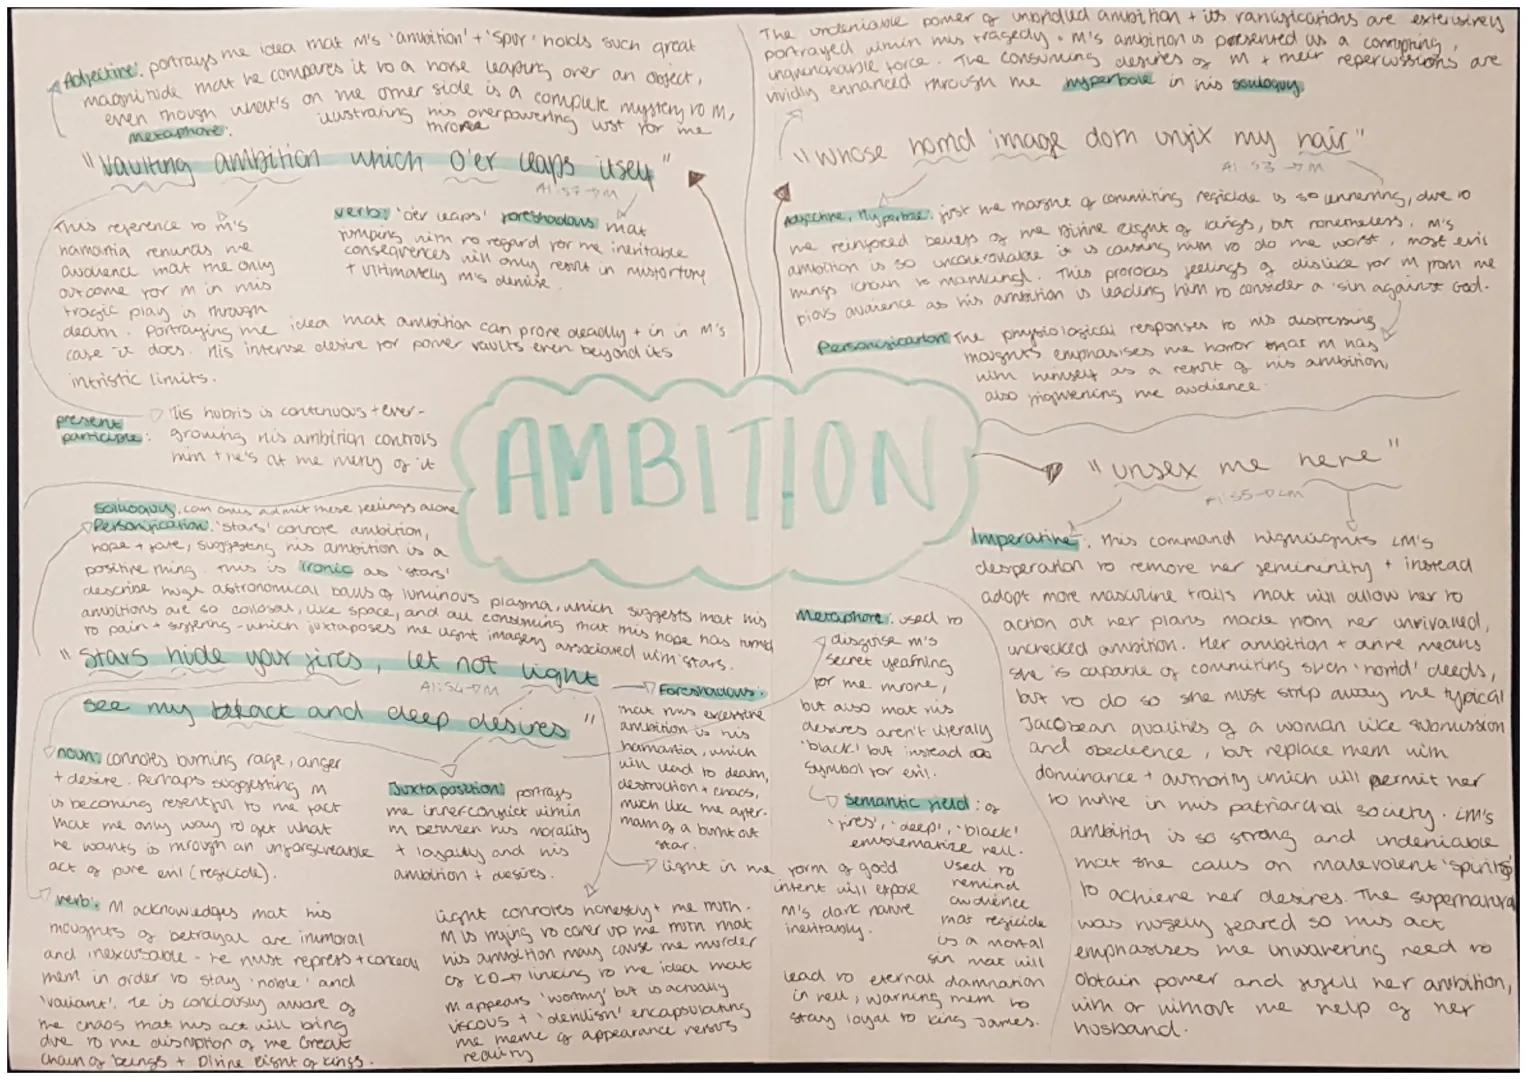 Adjective: portrays the idea that M's 'ambition' + 'spur' holds such great
magnitude that he compares it to a horse leaping over an object,
even though what's on the other side is a complete mystery to M,
metaphore: illustrating his overpowering lust for the
throne
"Vaulting ambition which o'er leaps itself"
A1:S7→M
This reference to M's
hamartia reminds the
audience that the only
outcome for M in this
tragic play is through
death. Portraying the idea that ambition can prove deadly + in in M's
case it does. His intense desire for power vaults even beyond its
intristic limits.
verb: 'o'er leaps' foreshadows that
jumping with no regard for the inevitable
consequences will only result in misfortune
+ ultimately M's demise.
present
participle:
His hubris is continuous + ever-
growing his ambition controls
him + he's at the mercy of it
The undeniable power of unbridled ambition + its ramifications are extensively
portrayed within this tragedy. M's ambition is presented as a corrupting,
unquenchable force. The consuming desires of M + their repercussions are
vividly enhanced through the hyperbole in his soliloquy.
"whose horrid image doth unfix my hair"
A1:S3→M
Adjective, Hyperbole: just the thought of committing regicide is so unnerving, due to
the reinforced beliefs of the Divine Right of kings, but nonetheless, M's
ambition is so uncontrollable it is causing him to do the worst, most evil
things known to mankind. This provokes feelings of dislike for M from the
pious audience as his ambition is leading him to consider a 'sin against God.
Personification: The physiological responses to his distressing
thoughts emphasises the horror that M has
with himself as a result of his ambition,
also frightening the audience.
AMBITION
"unsex me here"
A1:S5→LM
Imperative: this command highlights LM's
desperation to remove her femininity + instead
adopt more masculine traits that will allow her to
action out her plans made from her unrivalled,
unchecked ambition. Her ambition + drive means
she is capable of committing such 'horrid' deeds,
but to do so she must strip away the typical
Jacobean qualities of a woman like submission
and obedience, but replace them with
dominance + authority which will permit her
to thrive in this patriarchal society. LM's
ambition is so strong and undeniable
that she calls on malevolent 'spirits'
to achieve her desires. The supernatural
was hugely feared so this act
emphasises the unwavering need to
obtain power and fulfil her ambition,
with or without the help of her
husband.
Soliloquy, can only admit these feelings alone
Personification: 'stars' connote ambition,
hope + fate, suggesting his ambition is a
positive thing. This is ironic as 'stars'
describe huge astronomical balls of luminous plasma, which suggests that his
ambitions are so colossal, like space, and all consuming that this hope has turned
to pain + suffering - which juxtaposes the light imagery associated with stars.
"Stars hide your fires, let not light
A1:S4→M
see my black and deep desires"
noun: connotes burning rage, anger
+ desire. Perhaps suggesting M
is becoming resentful to the fact
that the only way to get what
he wants is through an unforgiveable
act of pure evil (regicide).
verb: M acknowledges that his
thoughts of betrayal are immoral
and inexcusable - he must repress + conceal
them in order to stay 'noble' and
'valiant'. He is conciously aware of
the chaos that his act will bring
due to the disruption of the Great
Chain of beings + Divine Right of Kings.
Juxtaposition: portrays
the inner conflict within
M between his morality
+ loyalty and his
ambition + desires.
Light connotes honesty + the truth.
M is trying to cover up the truth that
his ambition may cause the murder
of KD → linking to the idea that
M appears 'worthy' but is actually
viscous + 'devilish' encapsulating
the theme of appearance versus
reality
Foreshadows:
that this excessive
ambition is his
hamartia, which
will lead to death,
destruction + chaos,
much like the after-
math of a burnt out
star.
light in the form of good
intent will expose
M's dark nature
inevitably.
Metaphore: used to
disguise M's
secret yearning
for the throne,
but also that his
desires aren't literally
'black' but instead a
symbol for evil.
Semantic field: of
'fires', 'deep', 'black'
emblematize hell.
used to
remind
audience
that regicide
is a mortal
sin that will
lead to eternal damnation
in hell, warning them to
stay loyal to King James.